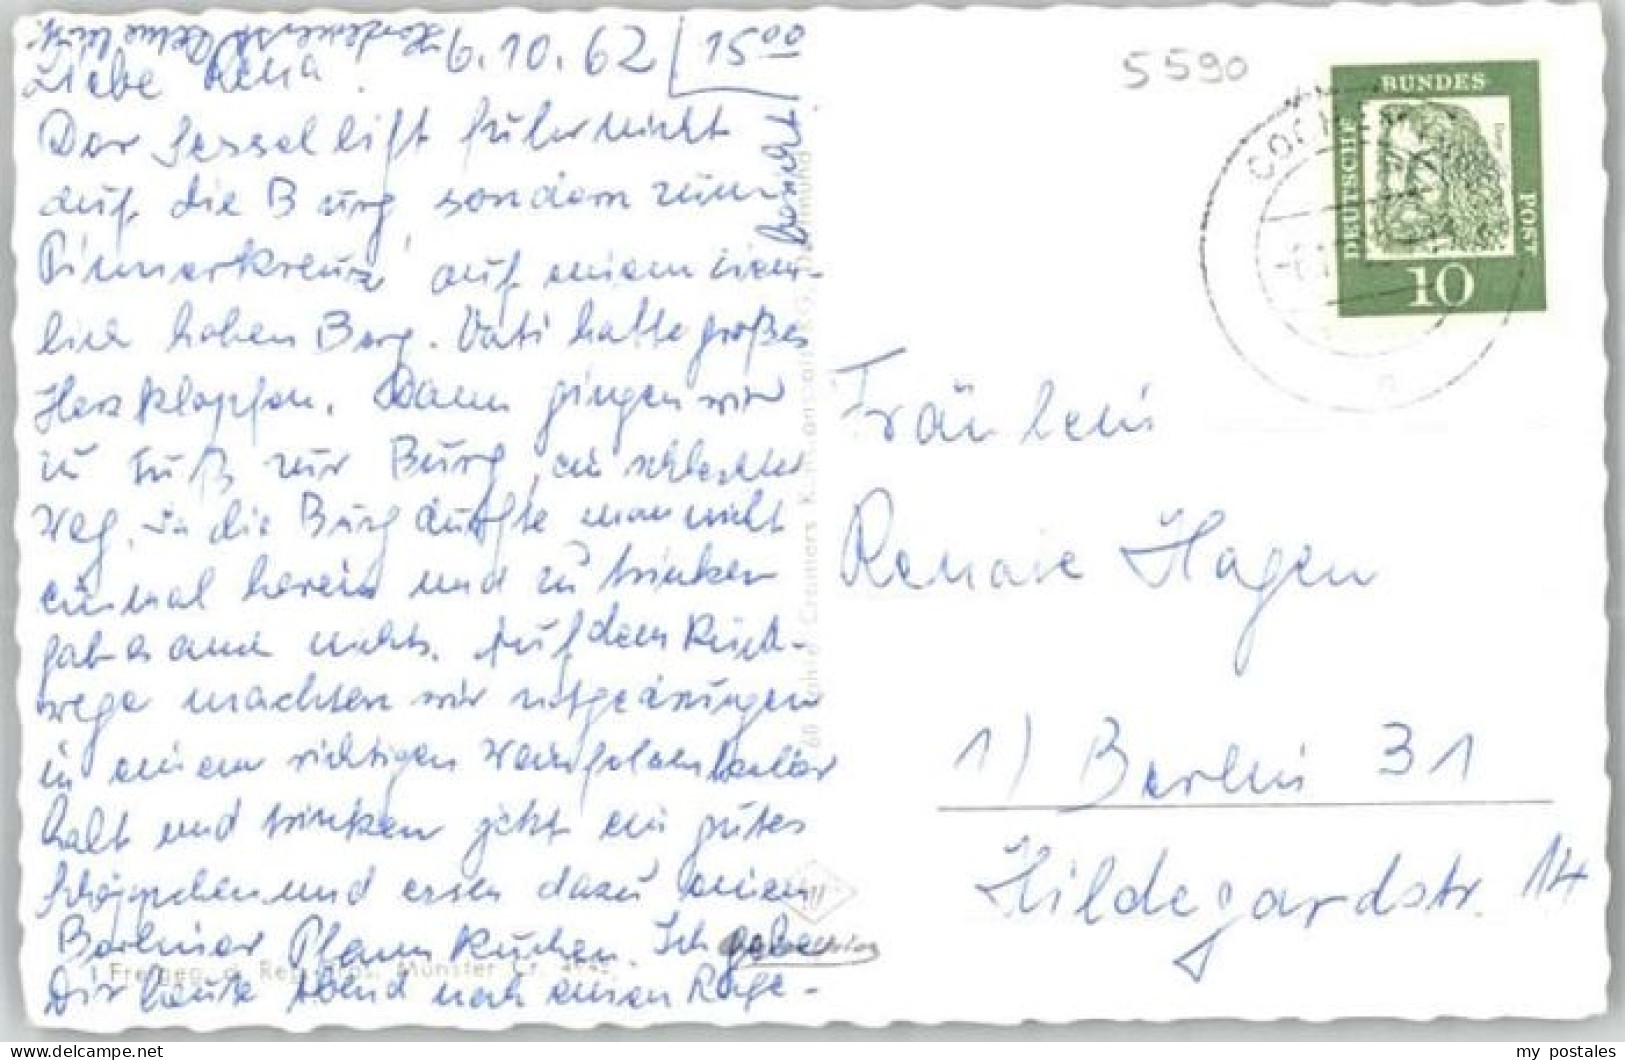 6.10.62 15⁰⁰
Liebe Rena!
Der Sessellift fuhr nicht
auf die Burg, sondern zum
Pinnerkreuz auf einem ziem-
lich hohen Berg. Vati hatte großes
Herzklopfen. Dann gingen wir
zu Fuß zur Burg, ein schlechter
Weg. In die Burg durfte man nicht
einmal herein und zu trinken
gab es auch nichts. Auf dem Rück-
wege machten wir notgedrungen
in einem richtigen Weinlokal
halt und trinken jetzt ein gutes
Schöppchen und essen dazu einen
Berliner Pfannkuchen. Ich gebe
Dir heute Abend noch einen Rage-
bericht.
5590
COCHEM
DEUTSCHE
BUNDES
POST
10
Fräulein
Renate Hagen
1) Berlin 31
Hildegardstr. 14
Freigeg. d. Reg. Präs. Münster
my postales